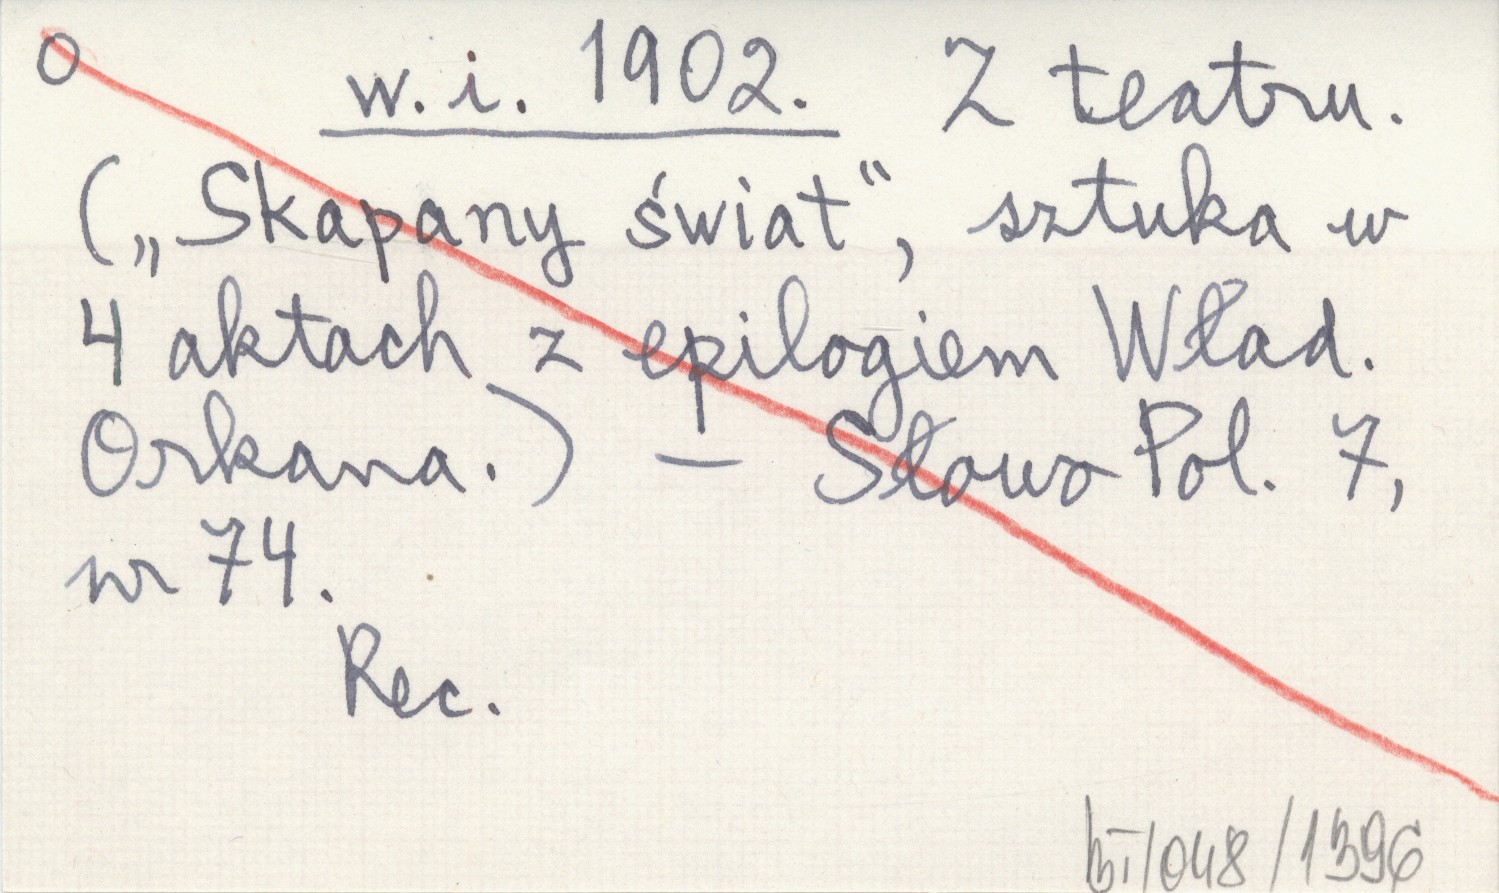 O
w. i. 1902. Z teatru.
(„Skapany świat“, sztuka w
4 aktach z epilogiem Wład.
Orkana.) — Słowo Pol. 7,
nr 74.
Rec.
/048/1396